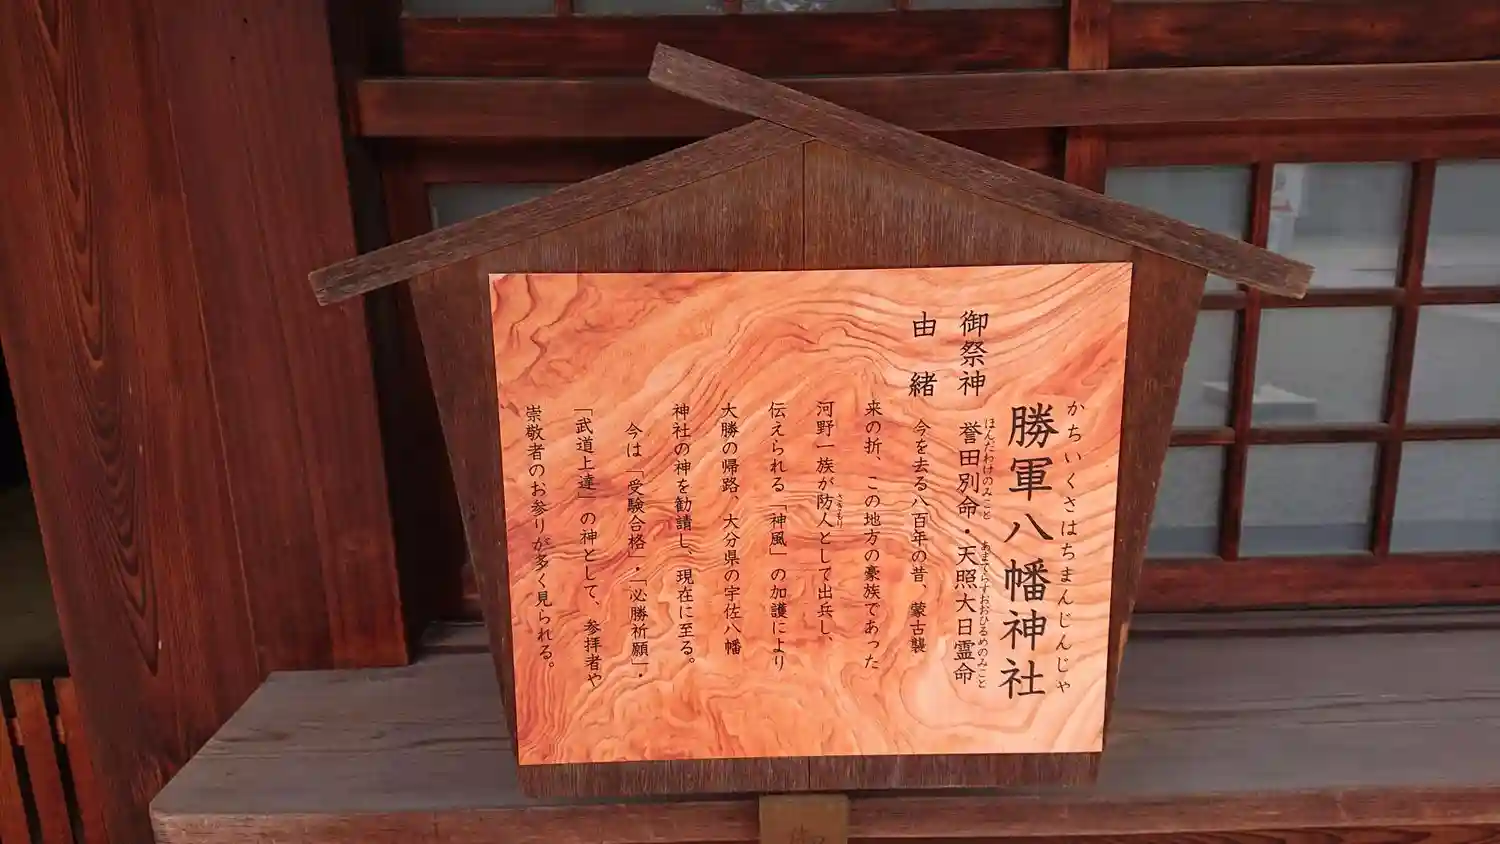 かちいくさはちまんじんじゃ
勝軍八幡神社
ほんだわけのみこと あまてらすおおひるめのみこと
御祭神 誉田別命・天照大日霊命
由緒 今を去る八百年の昔、蒙古襲
来の折、この地方の豪族であった
さきもり
河野一族が防人として出兵し、
伝えられる「神風」の加護により
大勝の帰路、大分県の宇佐八幡
神社の神を勧請し、現在に至る。
今は「受験合格」・「必勝祈願」・
「武道上達」の神として、参拝者や
崇敬者のお参りが多く見られる。